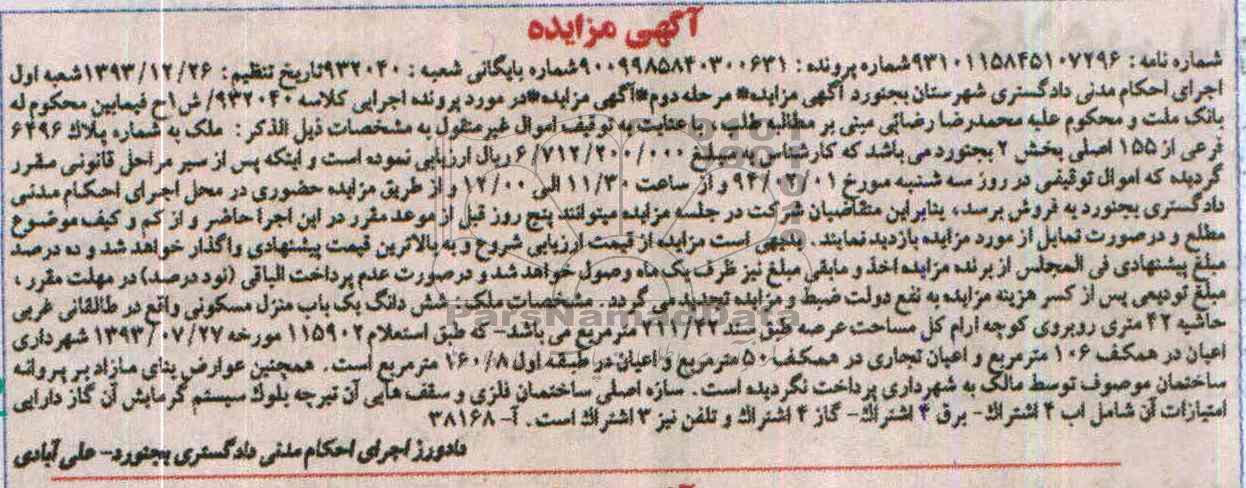 آگهی مزایده
شماره نامه : ۹۳۱۰۱۱۵۸۴۵۱۰۷۲۹۶شماره پرونده : ۹۰۰۹۹۸۵۸۴۰۳۰۰۶۳۱شماره بایگانی شعبه : ۹۳۲۰۴۰تاریخ تنظیم : ۱۳۹۳/۱۲/۲۶شعبه اول
اجرای احکام مدنی دادگستری شهرستان بجنورد آگهی مزایده* مرحله دوم*آگهی مزایده*در مورد پرونده اجرایی کلاسه ۹۳۲۰۴۰/ش۱ح فیمابین محکوم له
بانک ملت و محکوم علیه محمدرضا رضائی مبنی بر مطالبه طلب ، با عنایت به توقیف اموال غیرمنقول به مشخصات ذیل الذکر : ملک به شماره پلاک ۶۴۹۶
فرعی از ۱۵۵ اصلی بخش ۲ بجنورد می باشد که کارشناس به مبلغ ۶/۷۱۲/۲۰۰/۰۰۰ ریال ارزیابی نموده است و اینکه پس از سیر مراحل قانونی مقرر
گردیده که اموال توقیفی در روز سه شنبه مورخ ۹۴/۰۲/۰۱ و از ساعت ۱۱/۳۰ الی ۱۲/۰۰ و از طریق مزایده حضوری در محل اجرای احکام مدنی
دادگستری بجنورد به فروش برسد، بنابراین متقاضیان شرکت در جلسه مزایده میتوانند پنج روز قبل از موعد مقرر در این اجرا حاضر و از کم و کیف موضوع
مطلع و درصورت تمایل از مورد مزایده بازدید نمایند . بدیهی است مزایده از قیمت ارزیابی شروع و به بالاترین قیمت پیشنهادی واگذار خواهد شد و ده درصد
مبلغ پیشنهادی فی المجلس از برنده مزایده اخذ و مابقی مبلغ نیز ظرف یک ماه وصول خواهد شد و درصورت عدم پرداخت الباقی (نود درصد) در مهلت مقرر ،
مبلغ تودیعی پس از کسر هزینه مزایده به نفع دولت ضبط و مزایده تجدید می گردد . مشخصات ملک: شش دانگ یک باب منزل مسکونی واقع در طالقانی غربی
حاشیه ۴۲ متری روبروی کوچه ارام کل مساحت عرصه طبق سند ۷۱۱/۲۲ مترمربع می باشد- که طبق استعلام ۱۱۵۹۰۲ مورخه ۱۳۹۳/۰۷/۲۷ شهرداری
اعیان در همکف ۱۰۶ مترمربع و اعیان تجاری در همکف ۵۰ مترمربع و اعیان در طبقه اول ۱۶۰/۸ مترمربع است . همچنین عوارض بنای مازاد بر پروانه
ساختمان موصوف توسط مالک به شهرداری پرداخت نگردیده است . سازه اصلی ساختمان فلزی و سقف هایی آن تیرچه بلوک سیستم گرمایش آن گاز دارایی
امتیازات آن شامل اب ۴ اشتراک- برق ۴ اشتراک- گاز ۴ اشتراک و تلفن نیز ۳ اشتراک است . آ- ۳۸۱۶۸
دادورز اجرای احکام مدنی دادگستری بجنورد- علی آبادی
ParsNamadData